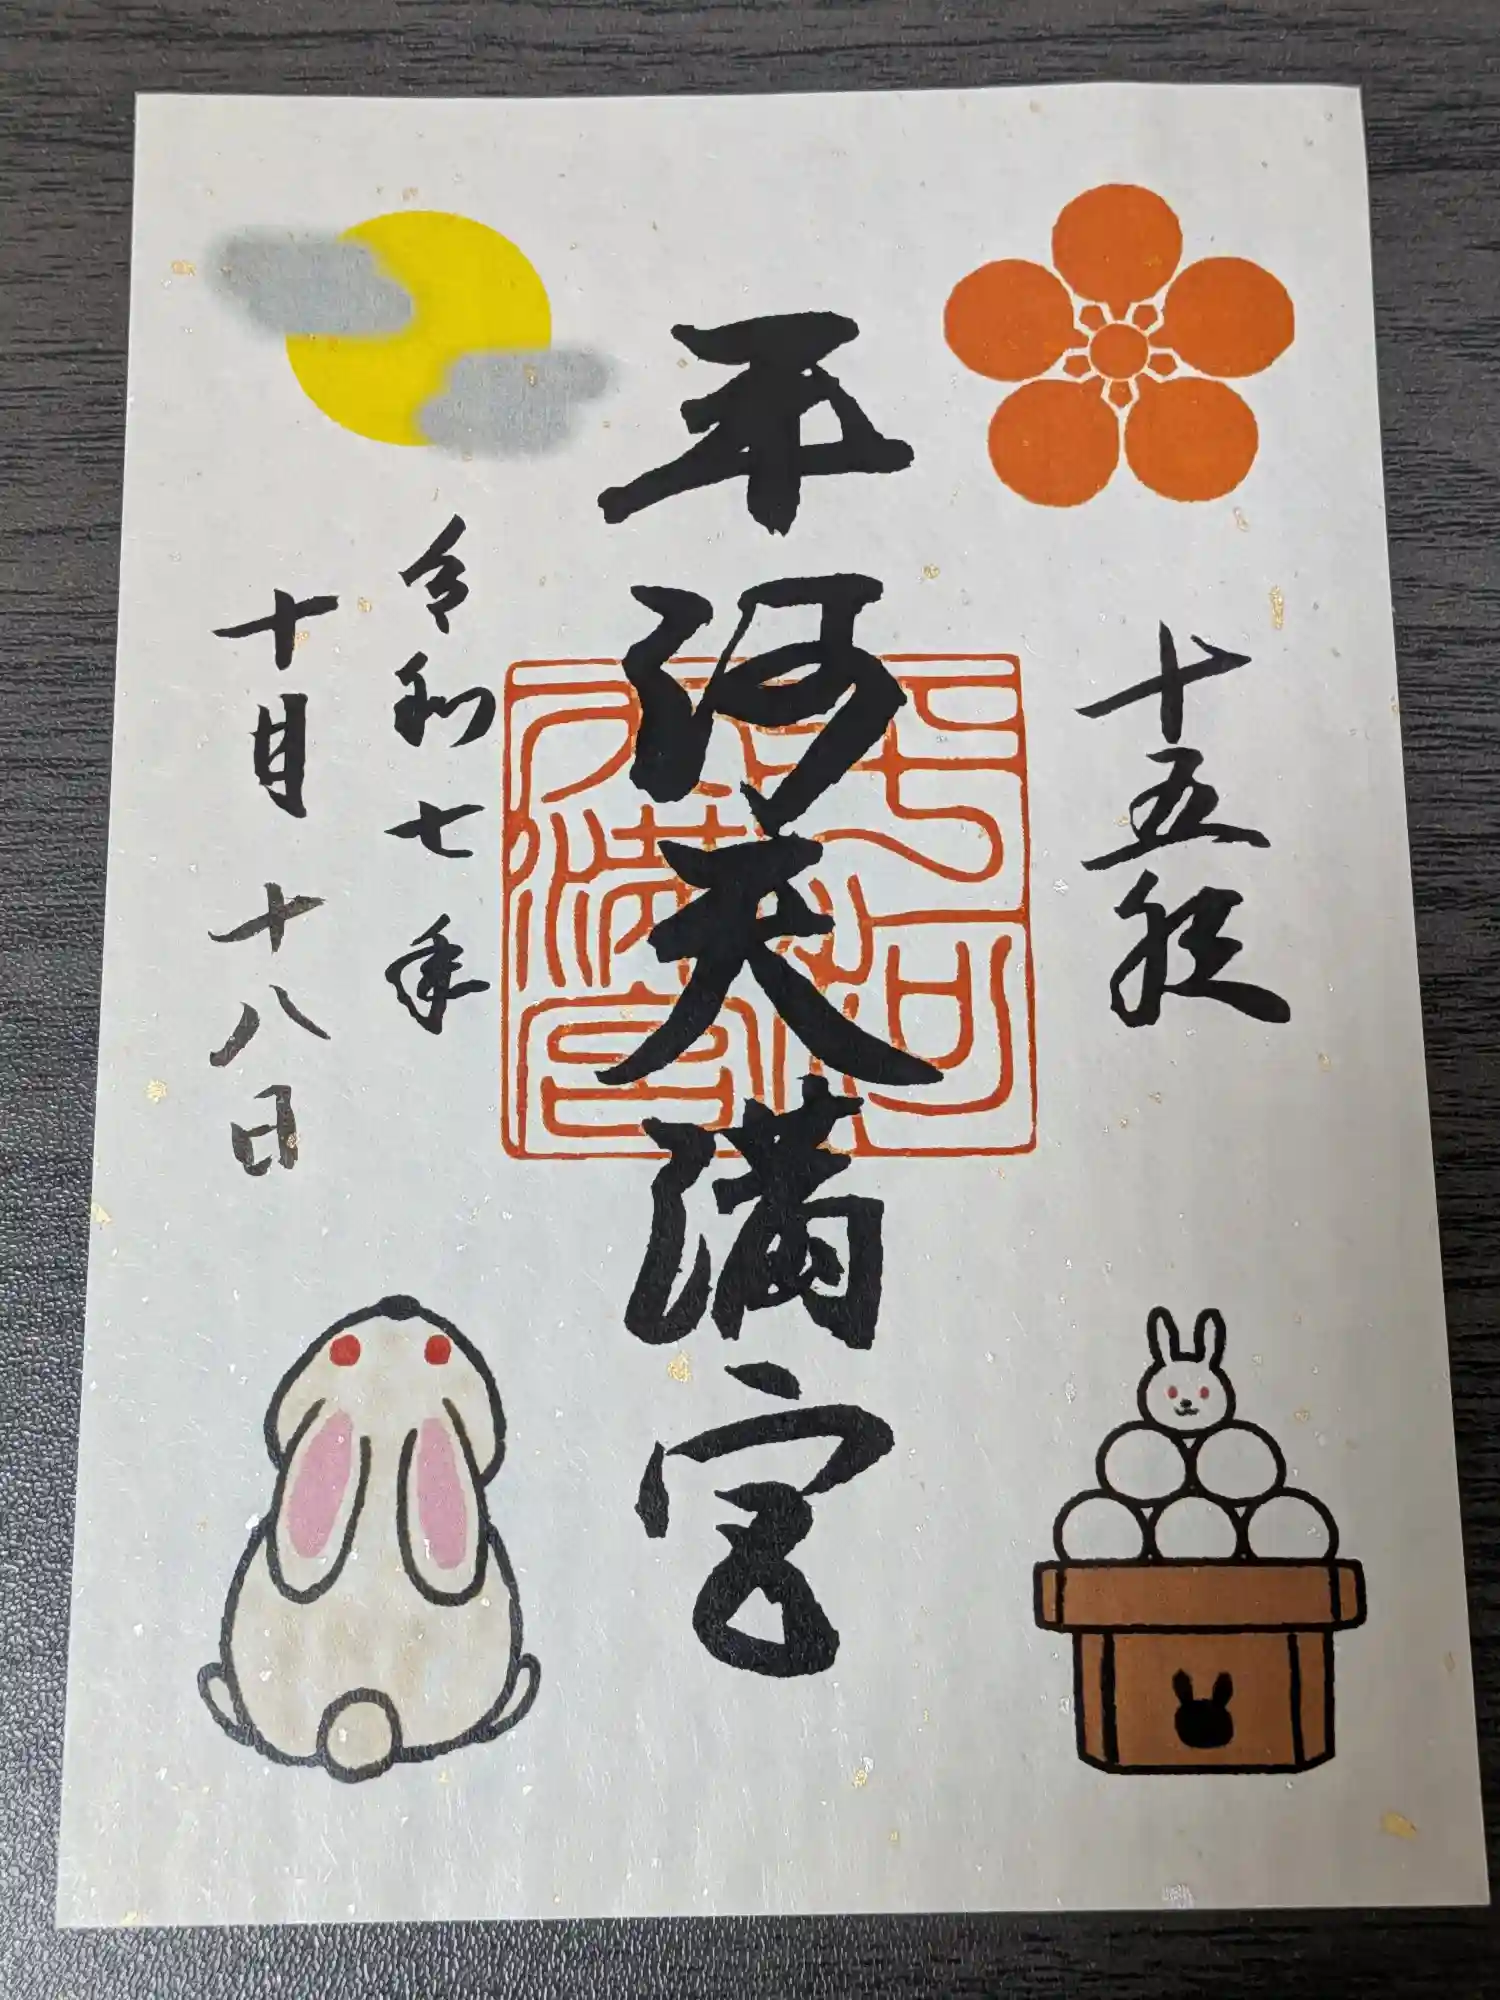 十五夜
平河天満宮
平河天満宮
令和七年
十月十八日